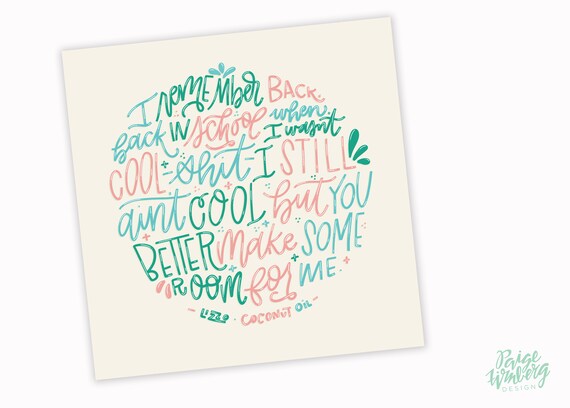 I remember BACK,
back IN school when
I wasn't
COOL -shit- I STILL
aint COOL but YOU
BETTER make SOME
ROOM for ME.
- LIZZO - COCONUT OIL -
Paige
Wimberg
DESIGN